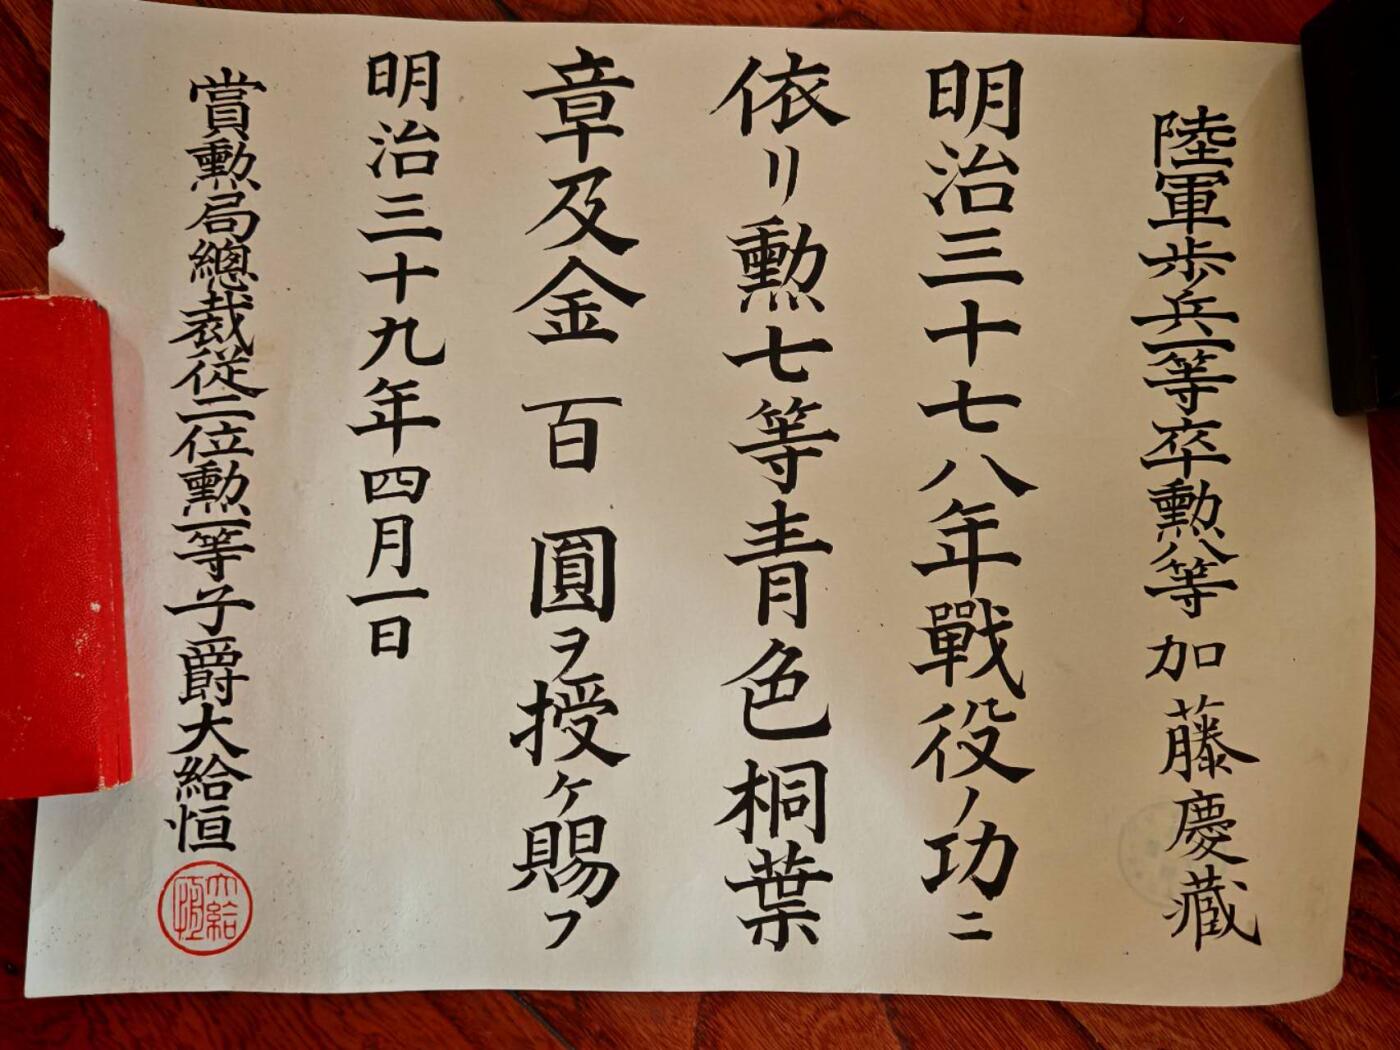 陸軍歩兵一等卒勲八等加藤慶藏
明治三十七八年戰役ノ功ニ
依リ勲七等青色桐葉
章及金百圓ヲ授ケ賜フ
明治三十九年四月一日
賞勲局總裁従二位勲一等子爵大給恒
大給恒